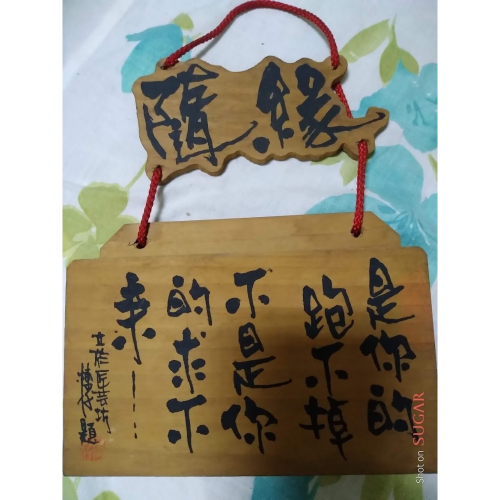 隨緣
是你的
跑不掉
不是你
的求不
来……
匠芸坊
題
Shot on SUGAR